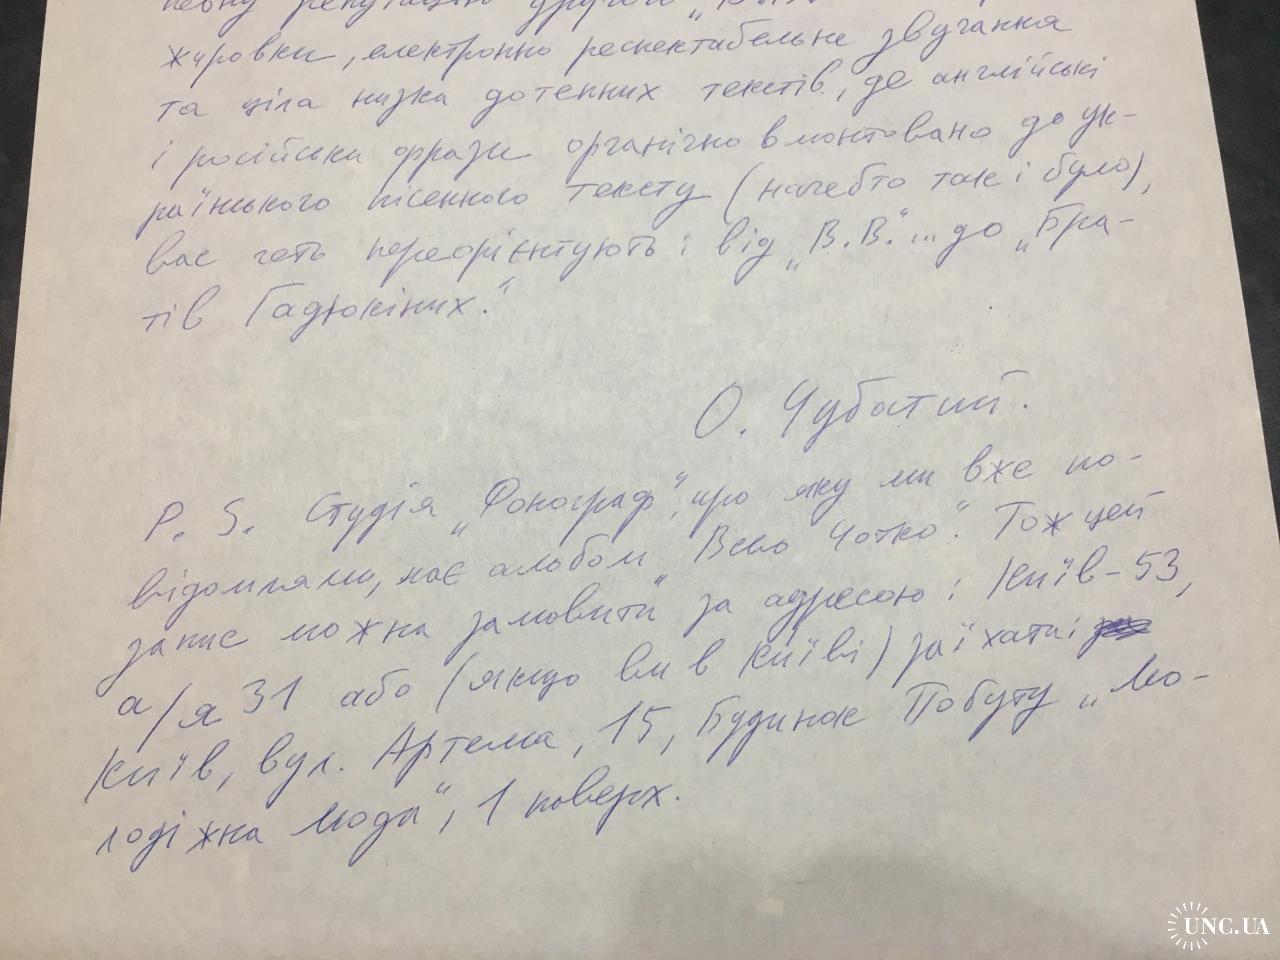 певну репутацію другого „В.В."
жировки, електронно респектабельне звучання
та ціла низка дотепних текстів, де англійські
і російськи фрази органічно вмонтовано до ук-
раїнського пісенного тексту (начебто так і було),
вас геть переорієнтують: від „В.В."... до „Бра-
тів Гадюкіних."
О. Чубатий.
P. S. Студія „Фонограф", про яку ми вже по-
відомляли, має альбом „Все Чотко". Тож цей
запис можна замовити за адресою: Київ-53,
а/я 31 або (якщо ви в Київі) заїхати:
Київ, вул. Артема, 15, Будинок Побуту „Мо-
лодіжна Мода", 1 поверх.
UNC.UA